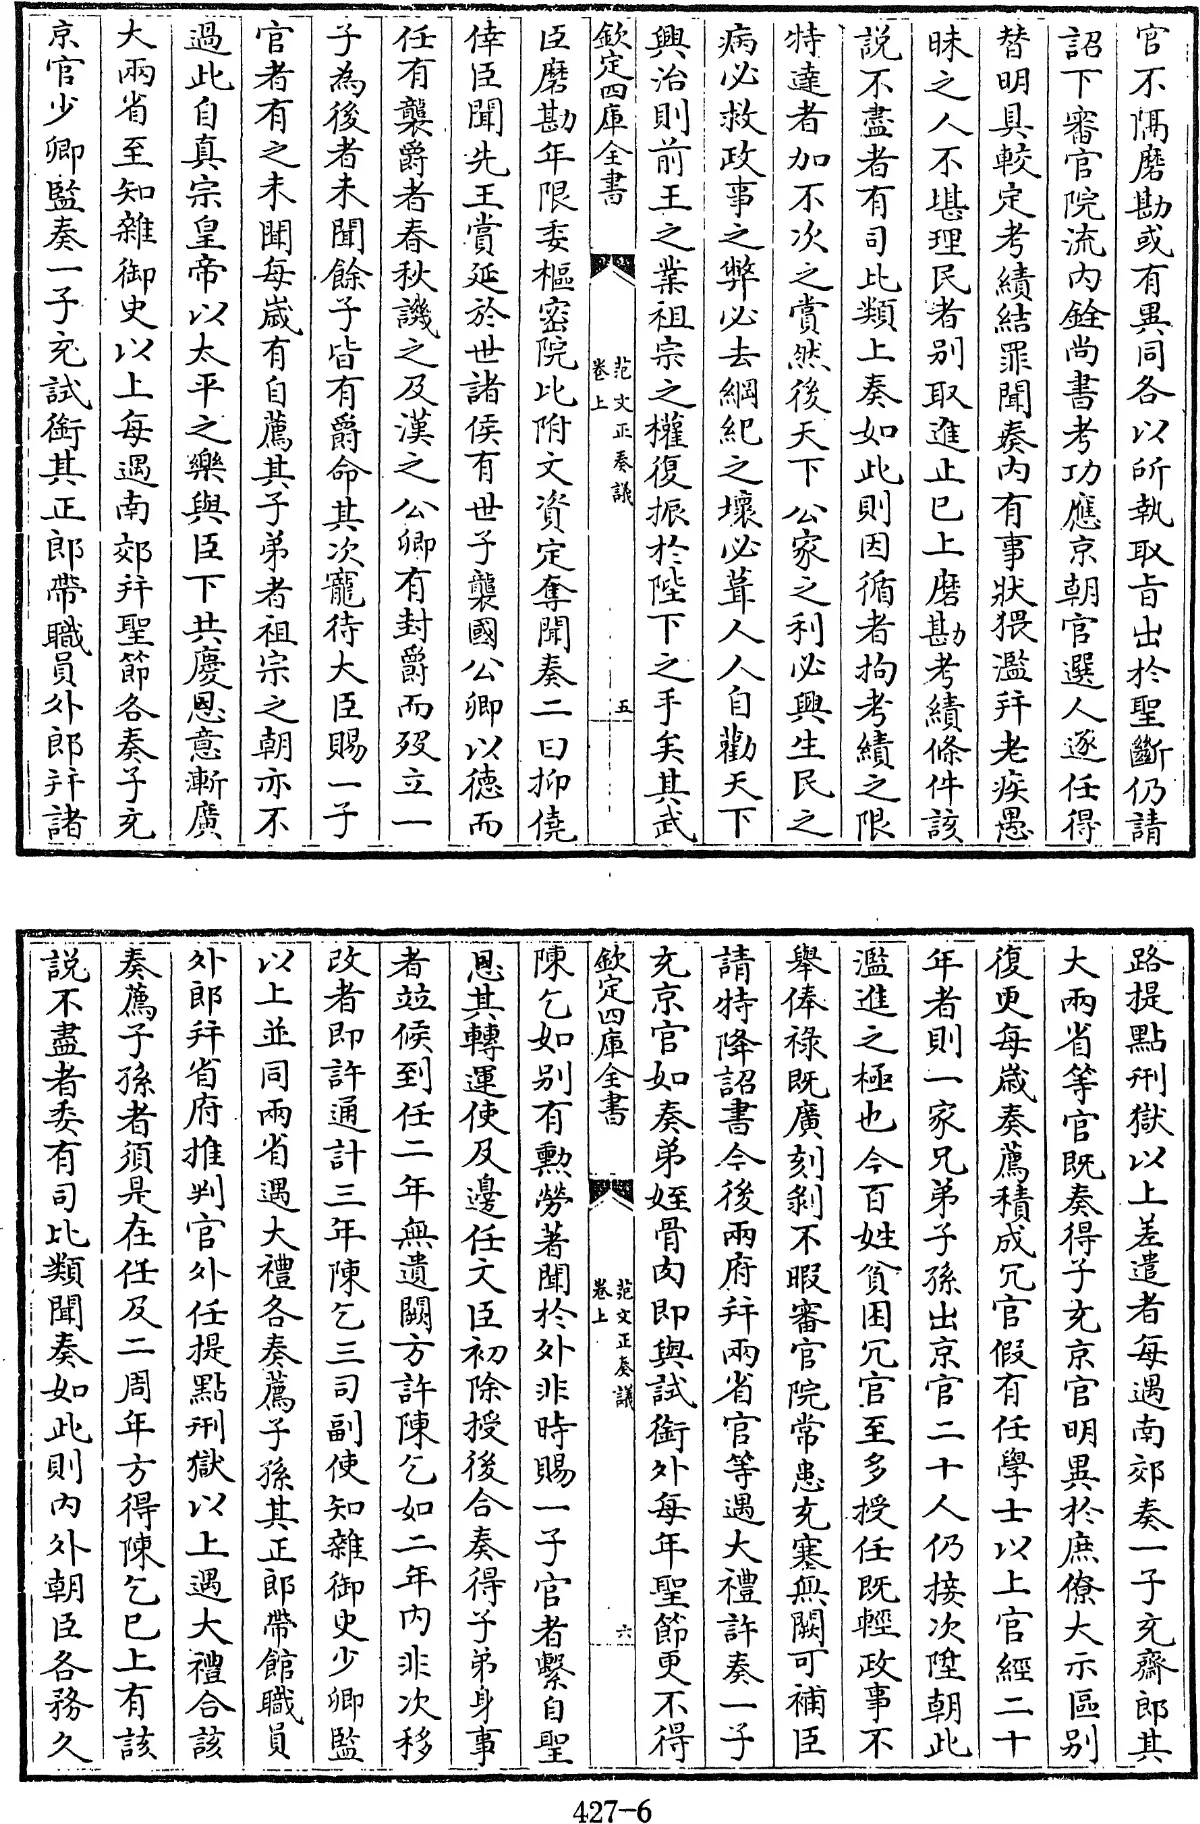 官不隔磨勘或有異同各以所執取旨出於聖斷仍請
詔下審官院流内銓尚書考功應京朝官選人逐任得
替明具較定考績結罪聞奏内有事狀猥濫并老疾愚
昧之人不堪理民者别取進止已上磨勘考績條件該
説不盡者有司比類上奏如此則因循者拘考績之限
特達者加不次之賞然後天下公家之利必興生民之
病必救政事之弊必去綱紀之壞必葺人人自勸天下
興治則前王之業祖宗之權復振於陛下之手矣其武
欽定四庫全書
范文正奏議
卷上
五
臣磨勘年限委樞密院比附文資定奪聞奏二曰抑僥
倖臣聞先王賞延於世諸侯有世子襲國公卿以德而
任有襲爵者春秋譏之及漢之公卿有封爵而殁立一
子為後者未聞餘子皆有爵命其次寵待大臣賜一子
官者有之未聞每嵗有自薦其子弟者祖宗之朝亦不
過此自真宗皇帝以太平之樂與臣下共慶恩意漸廣
大兩省至知雜御史以上每遇南郊并聖節各奏子充
京官少卿監奏一子充試銜其正郎帶職員外郎并諸
路提點刑獄以上差遣者每遇南郊奏一子充齋郎其
大兩省等官既奏得子充京官明異於庶僚大示區别
復更每嵗奏薦積成冗官假有任學士以上官經二十
年者則一家兄弟子孫出京官二十人仍接次陞朝此
濫進之極也今百姓貧困冗官至多授任既輕政事不
舉俸祿既廣刻剝不暇審官院常患充塞無闕可補臣
請特降詔書今後兩府并兩省官等遇大禮許奏一子
充京官如奏弟姪骨肉即與試銜外每年聖節更不得
欽定四庫全書
范文正奏議
卷上
六
陳乞如别有勲勞著聞於外非時賜一子官者繫自聖
恩其轉運使及邊任文臣初除授後合奏得子弟身事
者竝候到任二年無遺闕方許陳乞如二年内非次移
改者即許通計三年陳乞三司副使知雜御史少卿監
以上並同兩省遇大禮各奏薦子孫其正郎帶館職員
外郎并省府推判官外任提點刑獄以上遇大禮合該
奏薦子孫者須是在任及二周年方得陳乞已上有該
説不盡者委有司比類聞奏如此則内外朝臣各務久
427-6